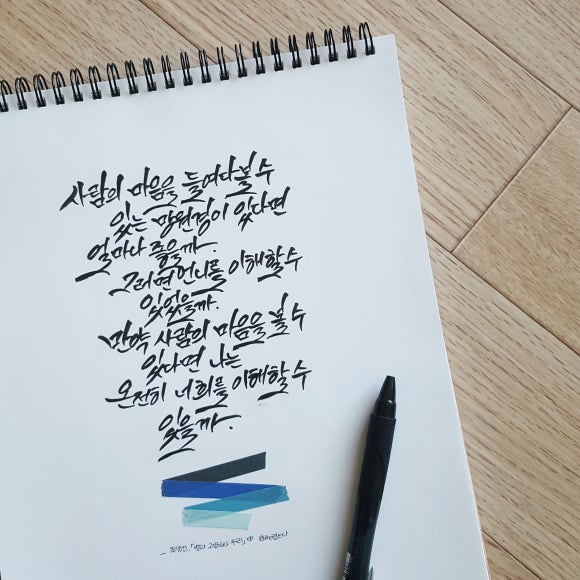 사람의 마음을 들여다볼 수
있는 망원경이 있다면
얼마나 좋을까.
그러면 언니를 이해할 수
있었을까.
만약 사람의 마음을 볼 수
있다면 나는
온전히 너희를 이해할 수
있을까.